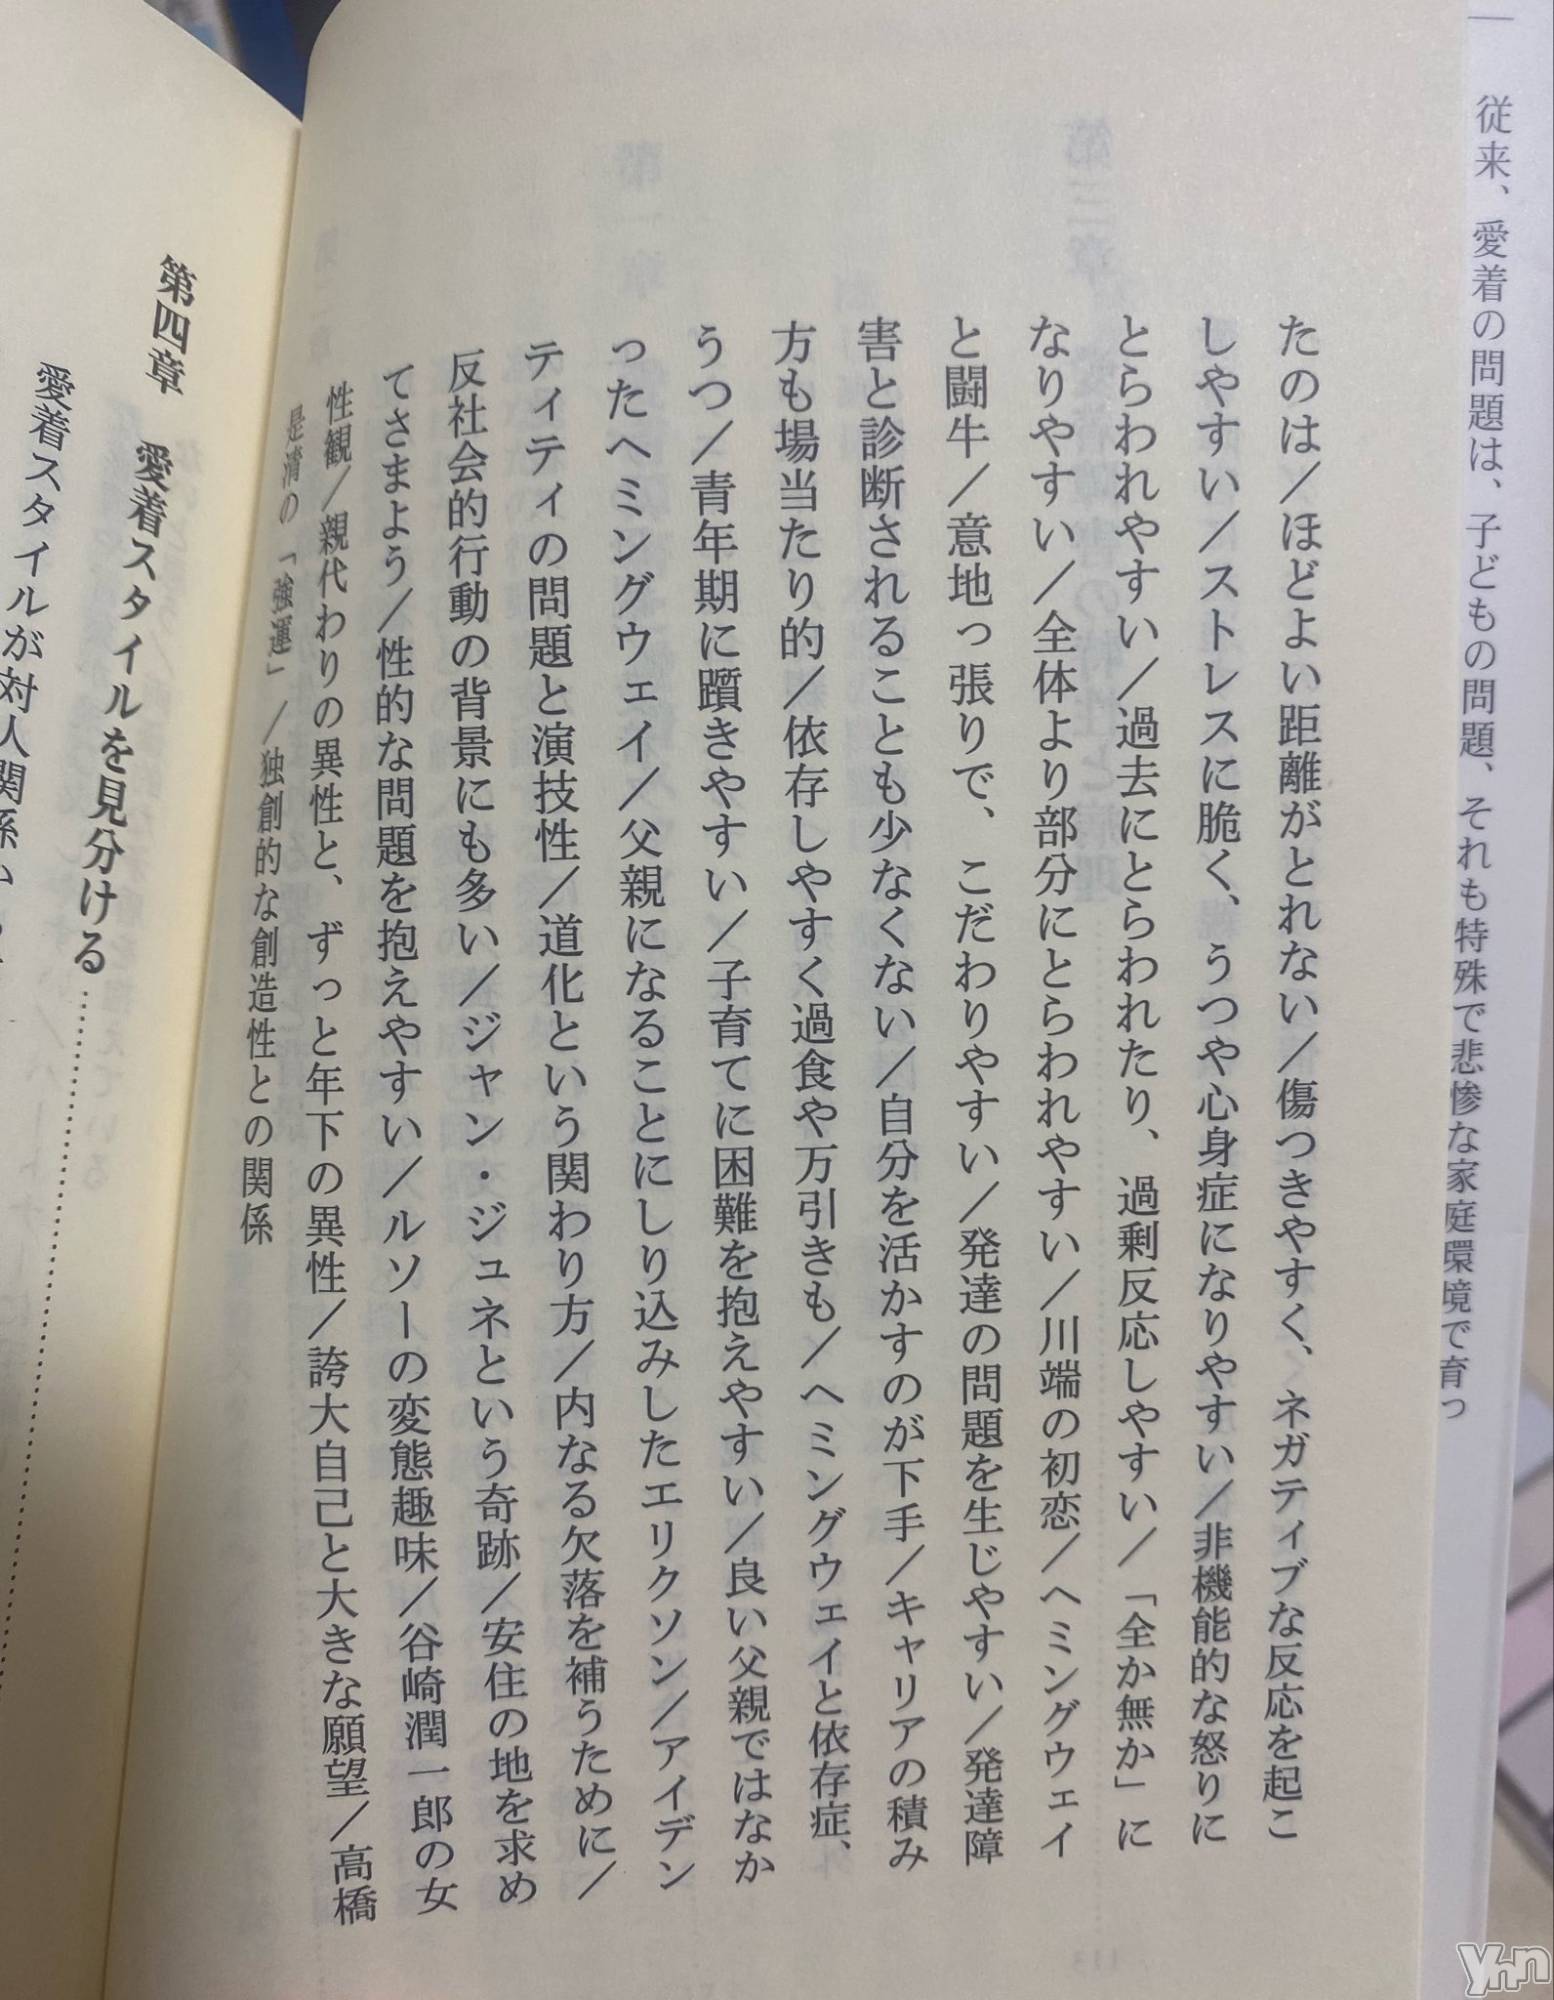 従来、愛着の問題は、子どもの問題、それも特殊で悲惨な家庭環境で育っ
たのは／ほどよい距離がとれない／傷つきやすく、ネガティブな反応を起こ
しやすい／ストレスに脆く、うつや心身症になりやすい／非機能的な怒りに
とらわれやすい／過去にとらわれたり、過剰反応しやすい／「全か無か」に
なりやすい／全体より部分にとらわれやすい／川端の初恋／ヘミングウェイ
と闘牛／意地っ張りで、こだわりやすい／発達の問題を生じやすい／発達障
害と診断されることも少なくない／自分を活かすのが下手／キャリアの積み
方も場当たり的／依存しやすく過食や万引きも／ヘミングウェイと依存症、
うつ／青年期に躓きやすい／子育てに困難を抱えやすい／良い父親ではなか
ったヘミングウェイ／父親になることにしり込みしたエリクソン／アイデン
ティティの問題と演技性／道化という関わり方／内なる欠落を補うために／
反社会的行動の背景にも多い／ジャン・ジュネという奇跡／安住の地を求め
てさまよう／性的な問題を抱えやすい／ルソーの変態趣味／谷崎潤一郎の女
性観／親代わりの異性と、ずっと年下の異性／誇大自己と大きな願望／高橋
是清の「強運」／独創的な創造性との関係
第四章 愛着スタイルを見分ける
愛着スタイルが対人関係
ynn